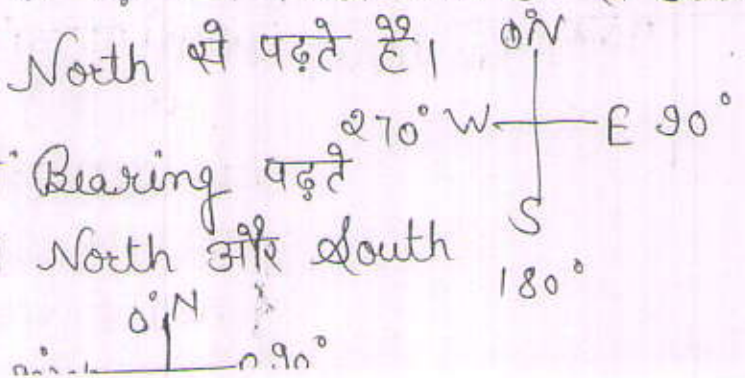 North से पढ़ते हैं।
0°N
270° W E 90°
S
180°
Bearing पढ़ते
North और South
0°N
90°